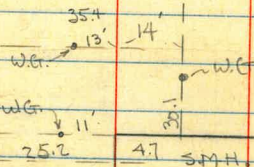 35.4
13' 14'
W.G. W.G
30.1
W.G. 11'
25.2 4.7 S.M.H.